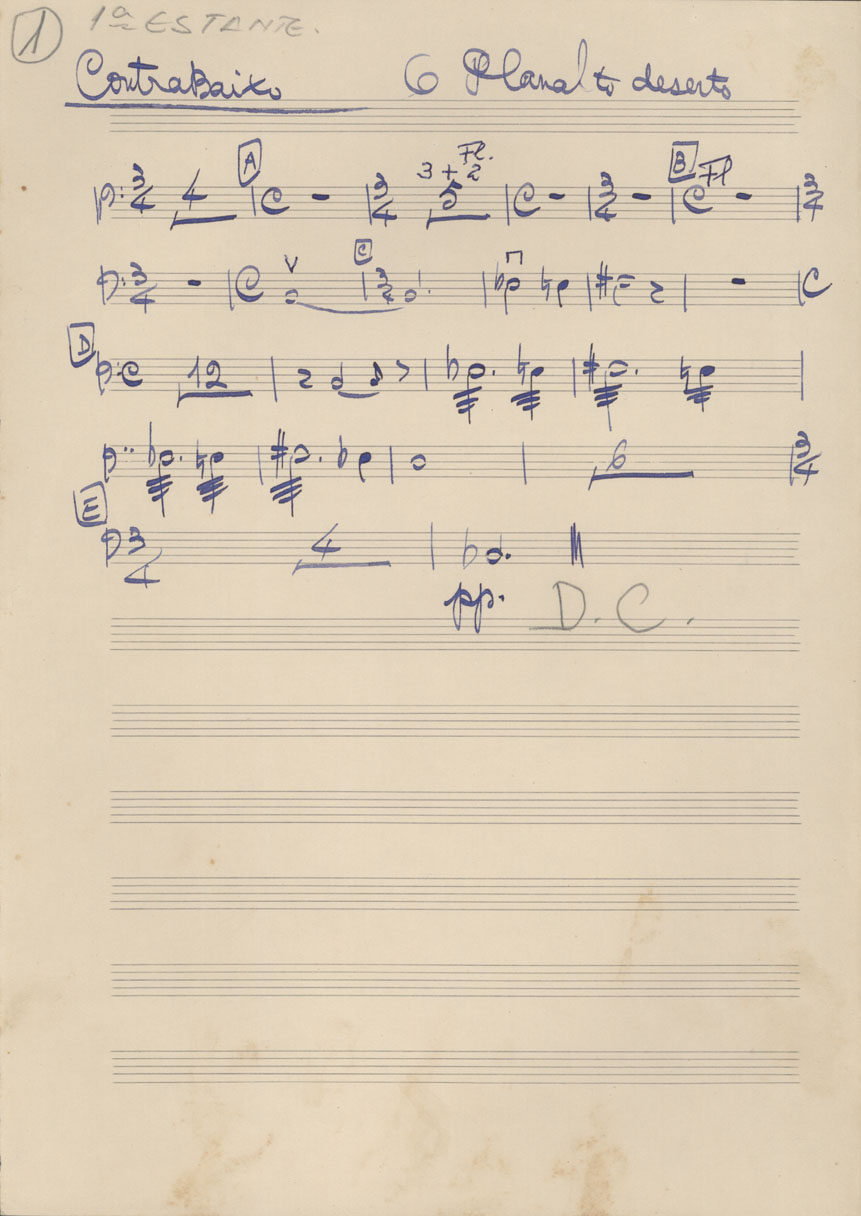 1 1ª ESTANTE.
ContraBaixo 6 Planalto deserto
A Fl. B
3/4 4 C 3/4 3 + 2 5 C 3/4 C Fl 3/4
3/4 C C 3/4 C
D C 12
6 3/4
E 3/4 4
pp. D.C.